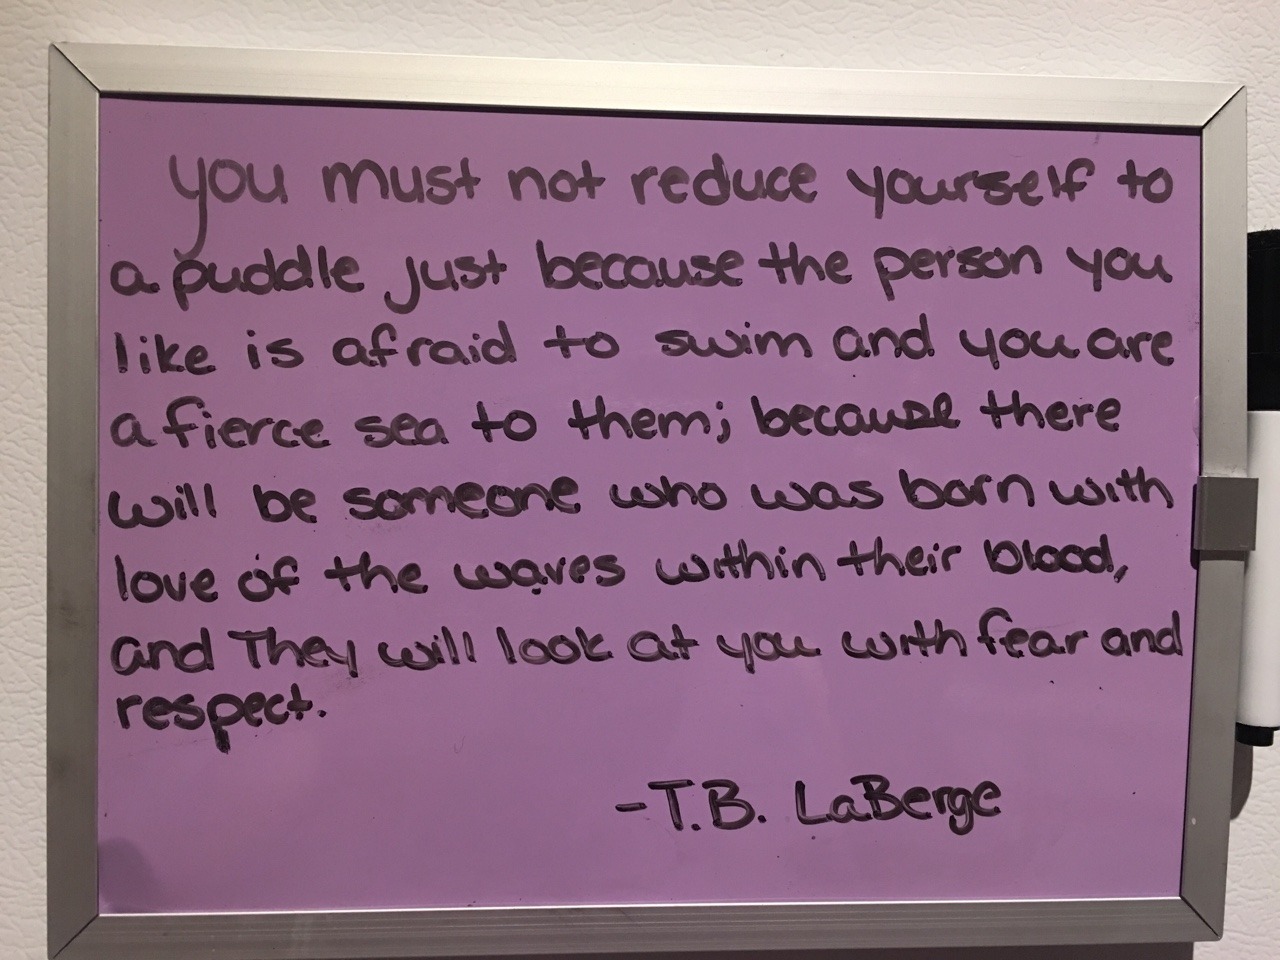 you must not reduce yourself to
a puddle just because the person you
like is afraid to swim and you are
a fierce sea to them; because there
will be someone who was born with
love of the waves within their blood,
and They will look at you with fear and
respect.
-T.B. LaBerge